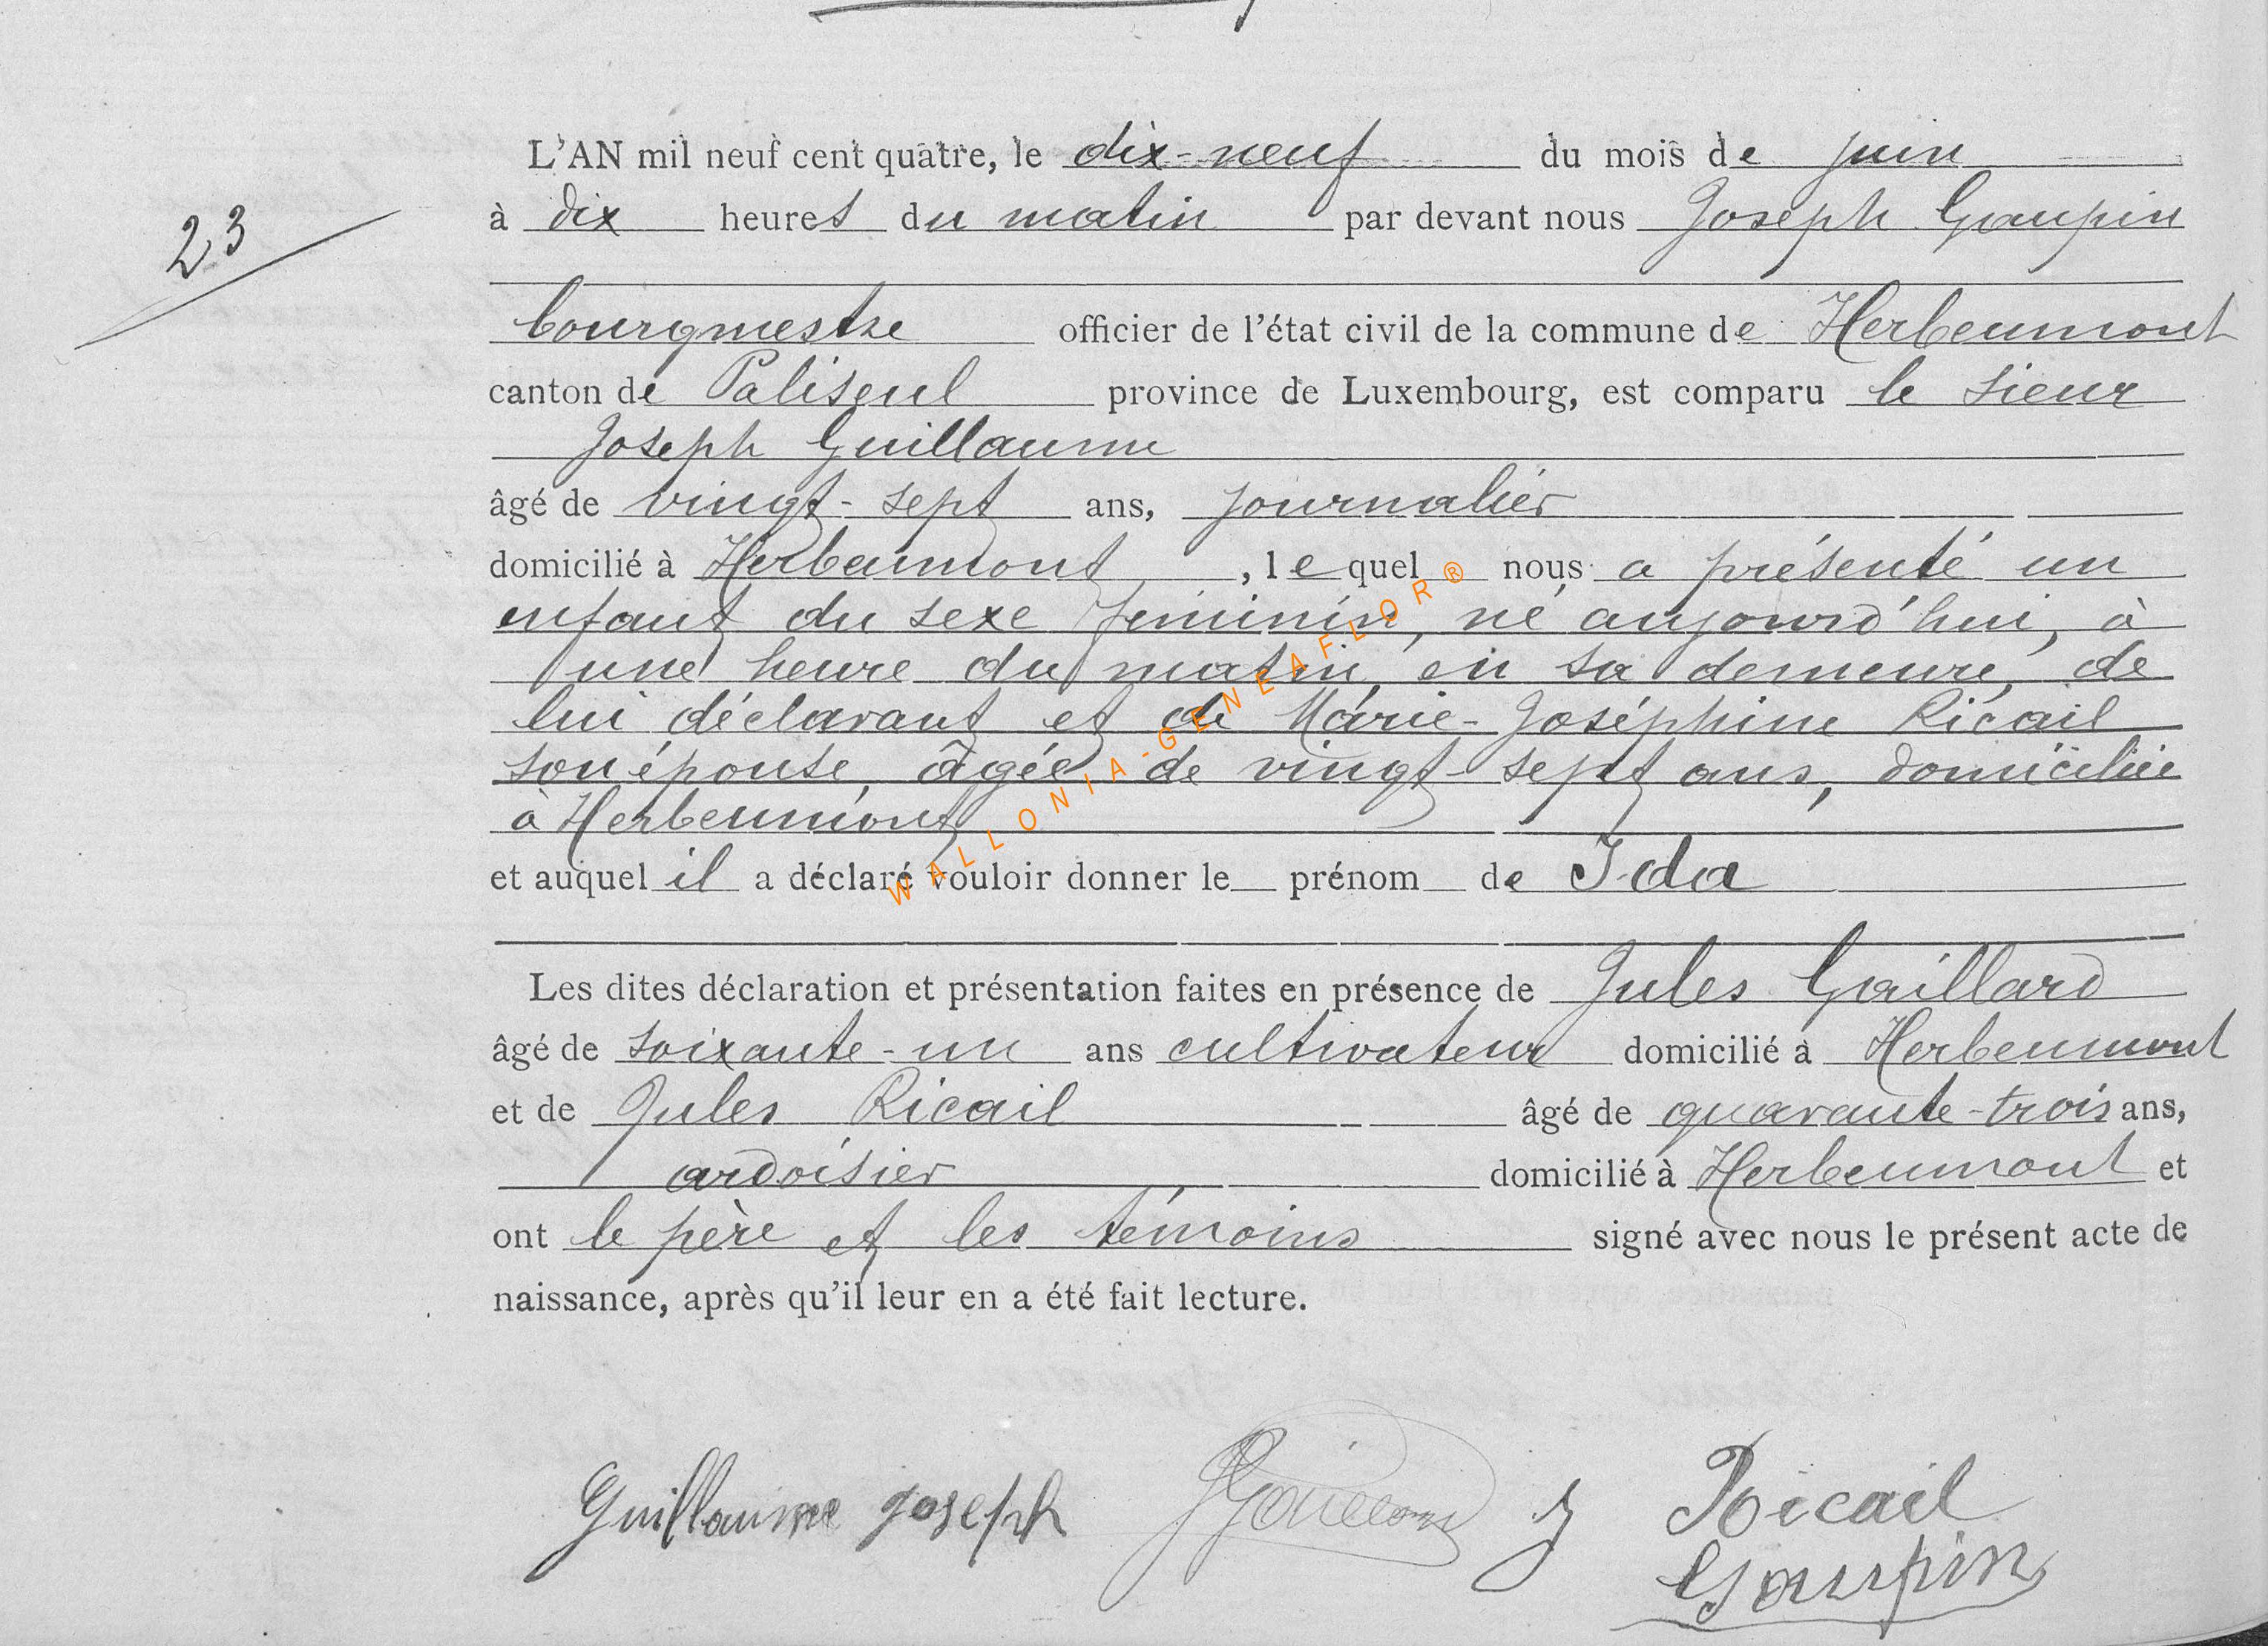 23
L'AN mil neuf cent quatre, le dix-neuf du mois de juin
à dix heures du matin par devant nous Joseph Gaupin
bourgmestre officier de l'état civil de la commune de Herbeumont
canton de Paliseul province de Luxembourg, est comparu le sieur
Joseph Guillaume
âgé de vingt-sept ans, journalier
domicilié à Herbeumont, lequel nous a présenté un
enfant du sexe féminin, né aujourd'hui, à
une heure du matin, en sa demeure, de
lui déclarant et de Marie-Joséphine Ricail
son épouse, âgée de vingt-sept ans, domiciliée
à Herbeumont
et auquel il a déclaré vouloir donner le prénom de Ida
Les dites déclaration et présentation faites en présence de Jules Gaillard
âgé de soixante-un ans cultivateur domicilié à Herbeumont
et de Jules Ricail âgé de quarante-trois ans,
ardoisier domicilié à Herbeumont et
ont le père et les témoins signé avec nous le présent acte de
naissance, après qu'il leur en a été fait lecture.
Guillaume joseph JGaillard J Ricail
Gaupin
WALLONIA-GENEAFLOR®